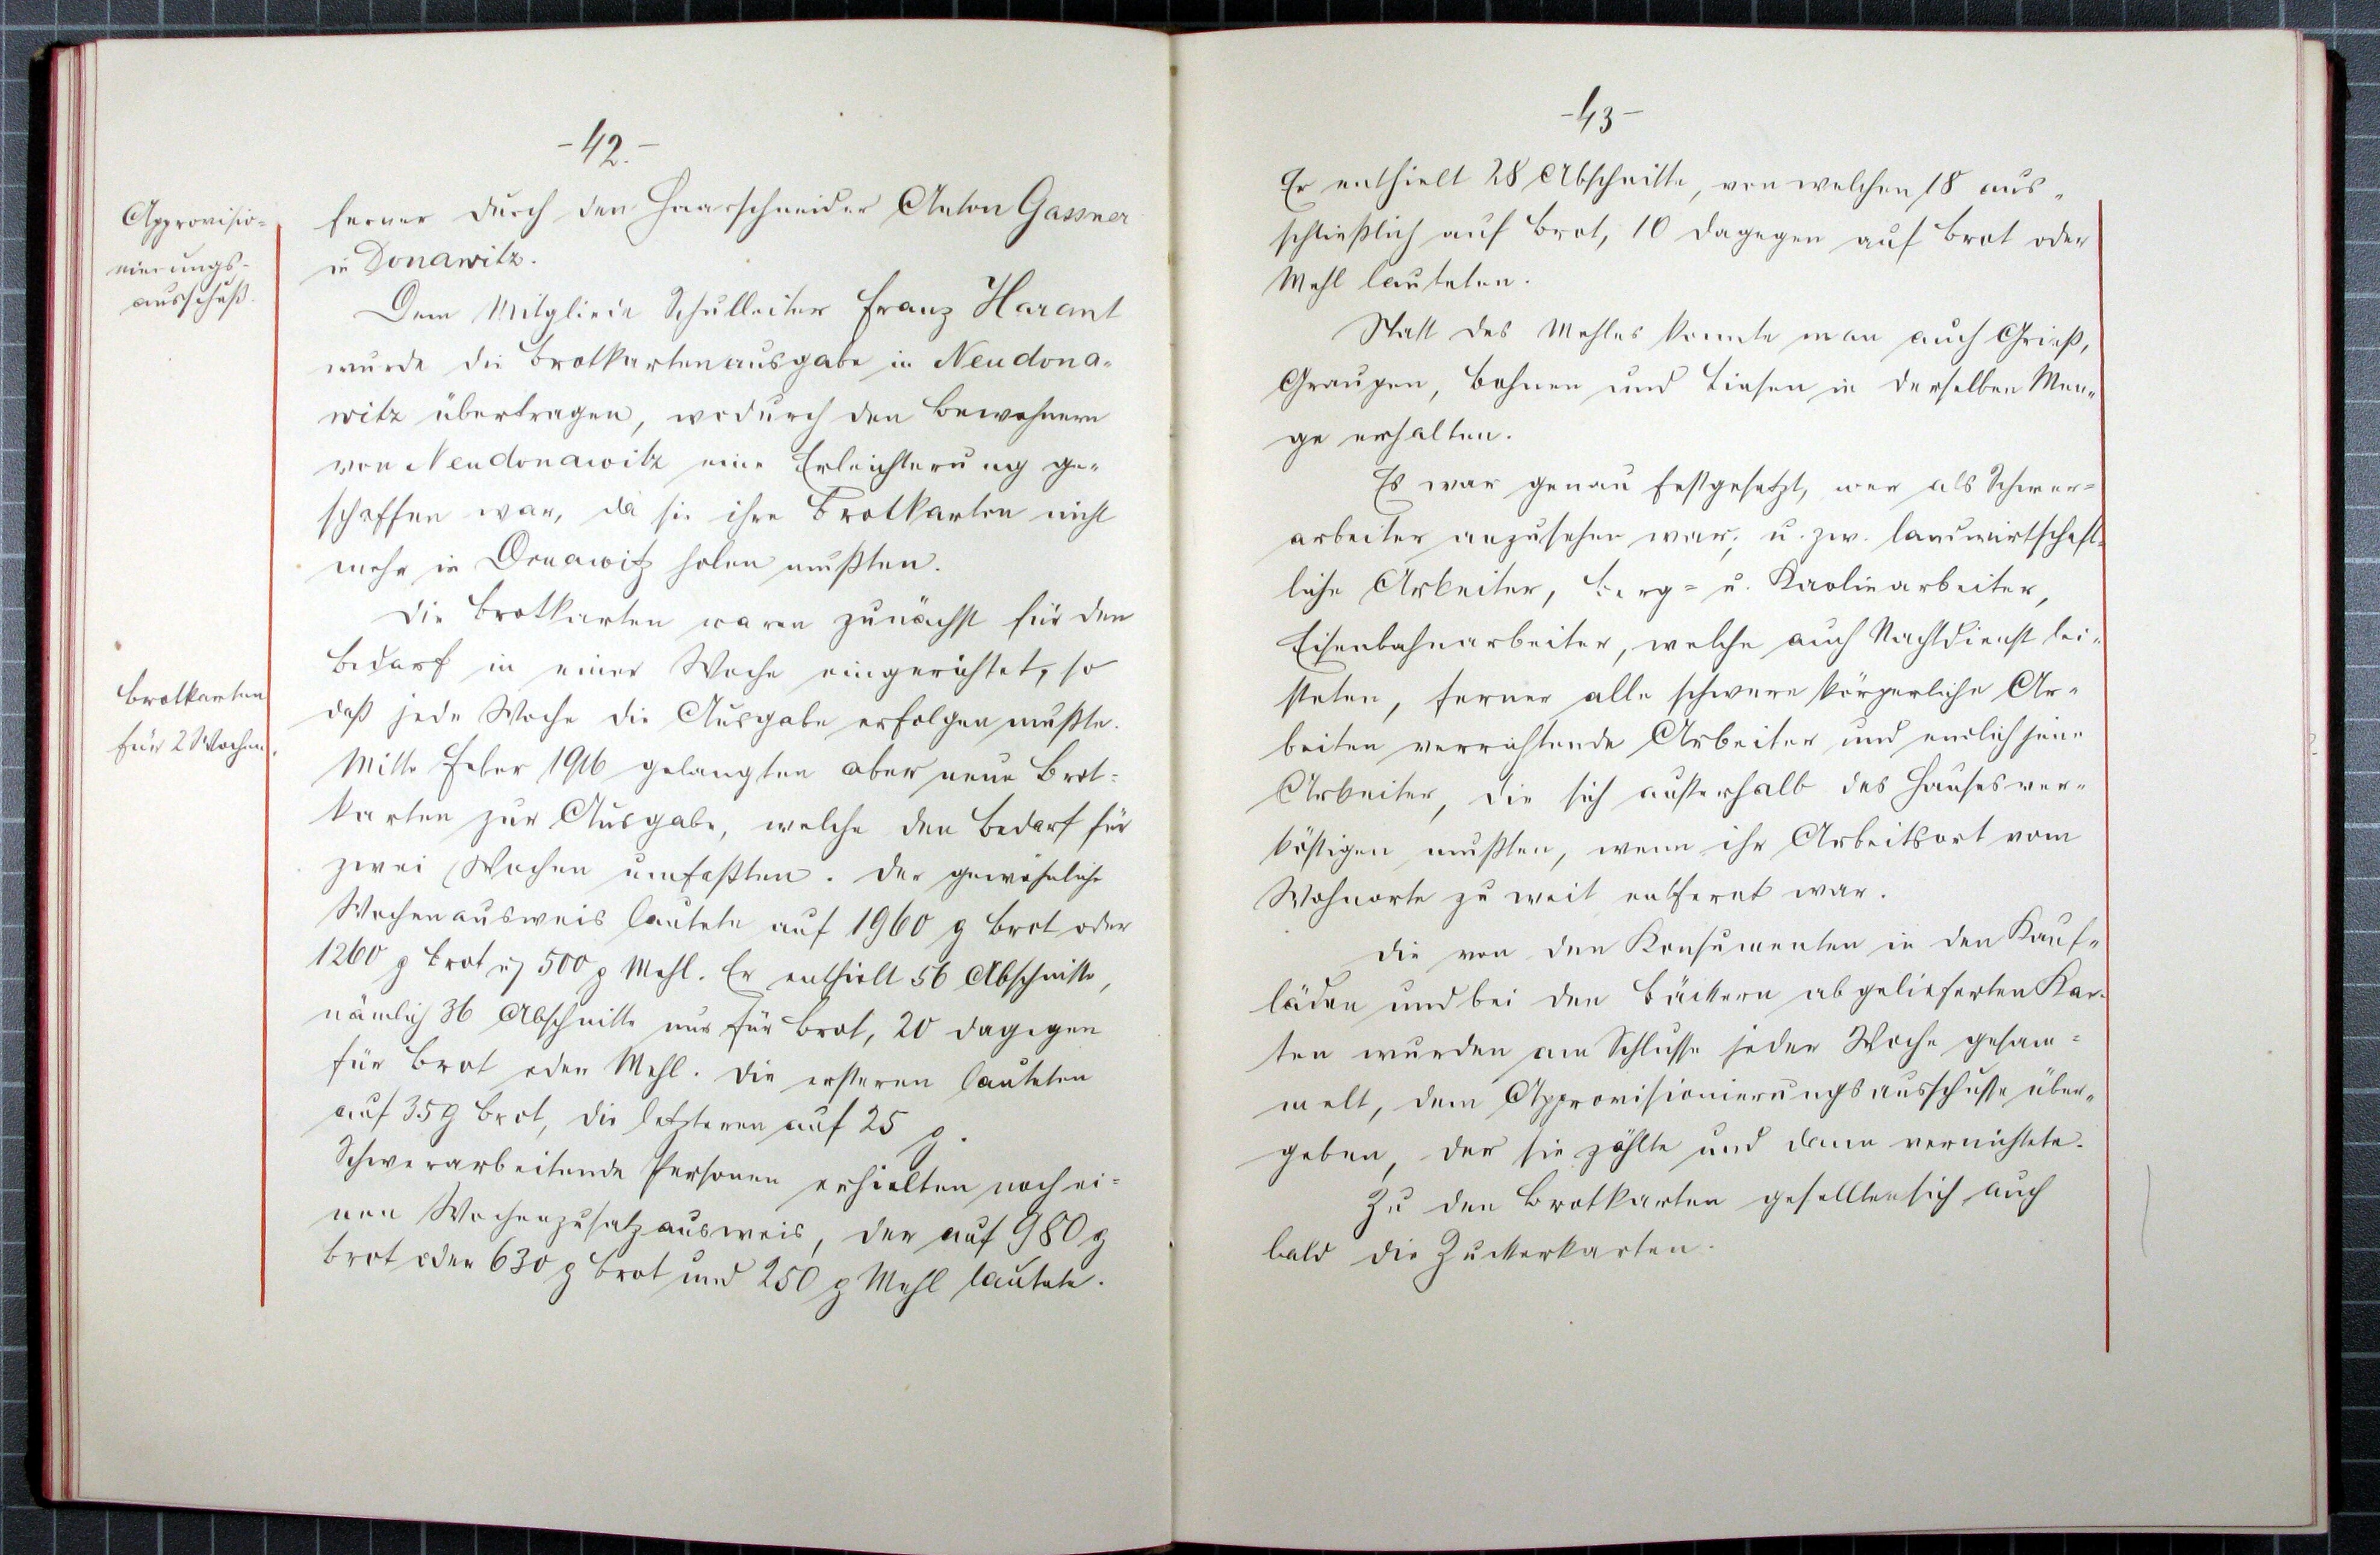 -42.-
Approvisio=
nierungs-
ausschuß.
ferner durch den Haarschneider Anton Gassner
in Donawitz.
Dem Mitgliede Schulleiter Franz Harant
wurde die Brotkartenausgabe in Neudona-
witz übertragen, wodurch den Bewohnern
von Neudonawitz eine Erleichterung ge-
schaffen war, da sie ihre Brotkarten nicht
mehr in Donawitz holen mußten.
Die Brotkarten waren zunächst für den
Bedarf in einer Woche eingerichtet, so
daß jede Woche die Ausgabe erfolgen mußte.
Brotkarten
für 2 Wochen.
Mitte Feber 1916 gelangten aber neue Brot=
karten zur Ausgabe, welche den Bedarf für
zwei Wochen umfaßten. Der gewöhnliche
Wochenausweis lautete auf 1960 g Brot oder
1260 g Brot u 500 g Mehl. Er enthielt 56 Abschnitte,
nämlich 36 Abschnitte nur für Brot, 20 dagegen
für Brot oder Mehl. Die ersteren lauteten
auf 35 g Brot, die letzteren auf 25 g.
Schwerarbeitende Personen erhielten noch ei=
nen Wochenzusatzausweis, der auf 980 g
Brot oder 630 g Brot und 250 g Mehl lautete.
-43-
Er enthielt 28 Abschnitte, von welchen 18 aus-
schließlich auf Brot, 10 dagegen auf Brot oder
Mehl lauteten.
Statt des Mehles konnte man auch Grieß,
Graupen, Bohnen und Linsen in derselben Men-
ge erhalten.
Es war genau festgesetzt, wer als Schwer=
arbeiter anzusehen war, u. zw. landwirtschaft-
liche Arbeiter, Berg= u. Kaolinarbeiter,
Eisenbahnarbeiter, welche auch Nachtdienst lei-
steten, ferner alle schwere körperliche Ar-
beiten verrichtende Arbeiter und endlich jene
Arbeiter, die sich außerhalb des Hauses ver-
köstigen mußten, wenn ihr Arbeitsort vom
Wohnorte zu weit entfernt war.
Die von den Konsumenten in den Kauf-
läden und bei den Bäckern abgelieferten Kar-
ten wurden am Schlusse jeder Woche gesam=
melt, dem Approvisionierungsausschusse über-
geben, der sie zählte und dann vernichtete.
Zu den Brotkarten gesellten sich auch
bald die Zuckerkarten.